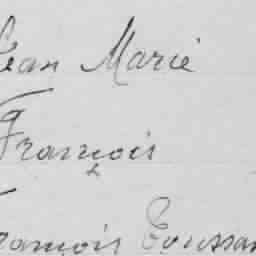 Jean Marie
François
François Toussan